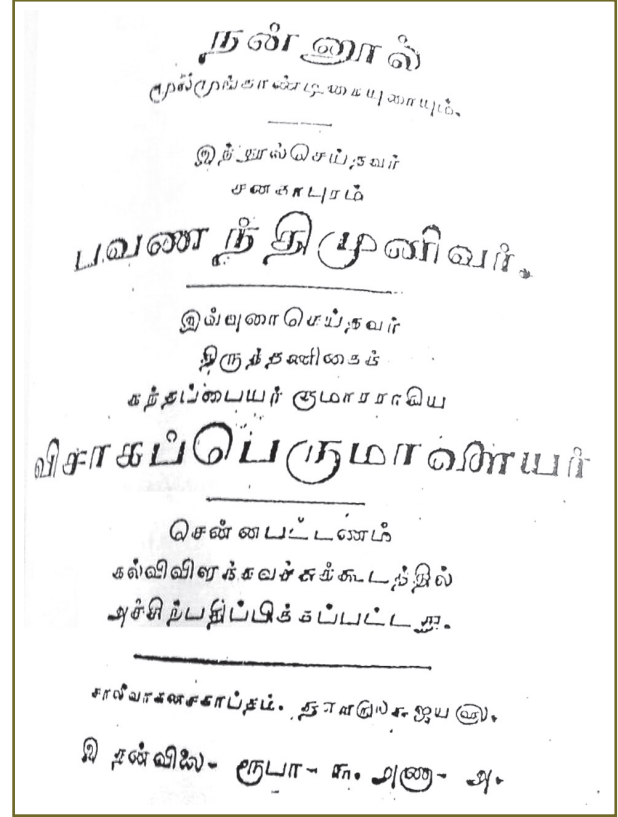 நன்னூல்
மூலமுங்காண்டிகையுரையும்.
இந்நூல்செய்தவர்
சனகாபுரம்
பவணந்திமுனிவர்.
இவ்வுரைசெய்தவர்
திருத்தணிகைக்
கந்தப்பையர் குமாரராகிய
விசாகப்பெருமாளையர்
சென்னபட்டணம்
கல்விவிளக்கவச்சுக்கூடத்தில்
அச்சிற்பதிப்பிக்கப்பட்டது.
சாலிவாகனசகாப்தம்.
இதன்விலை- ரூபா-